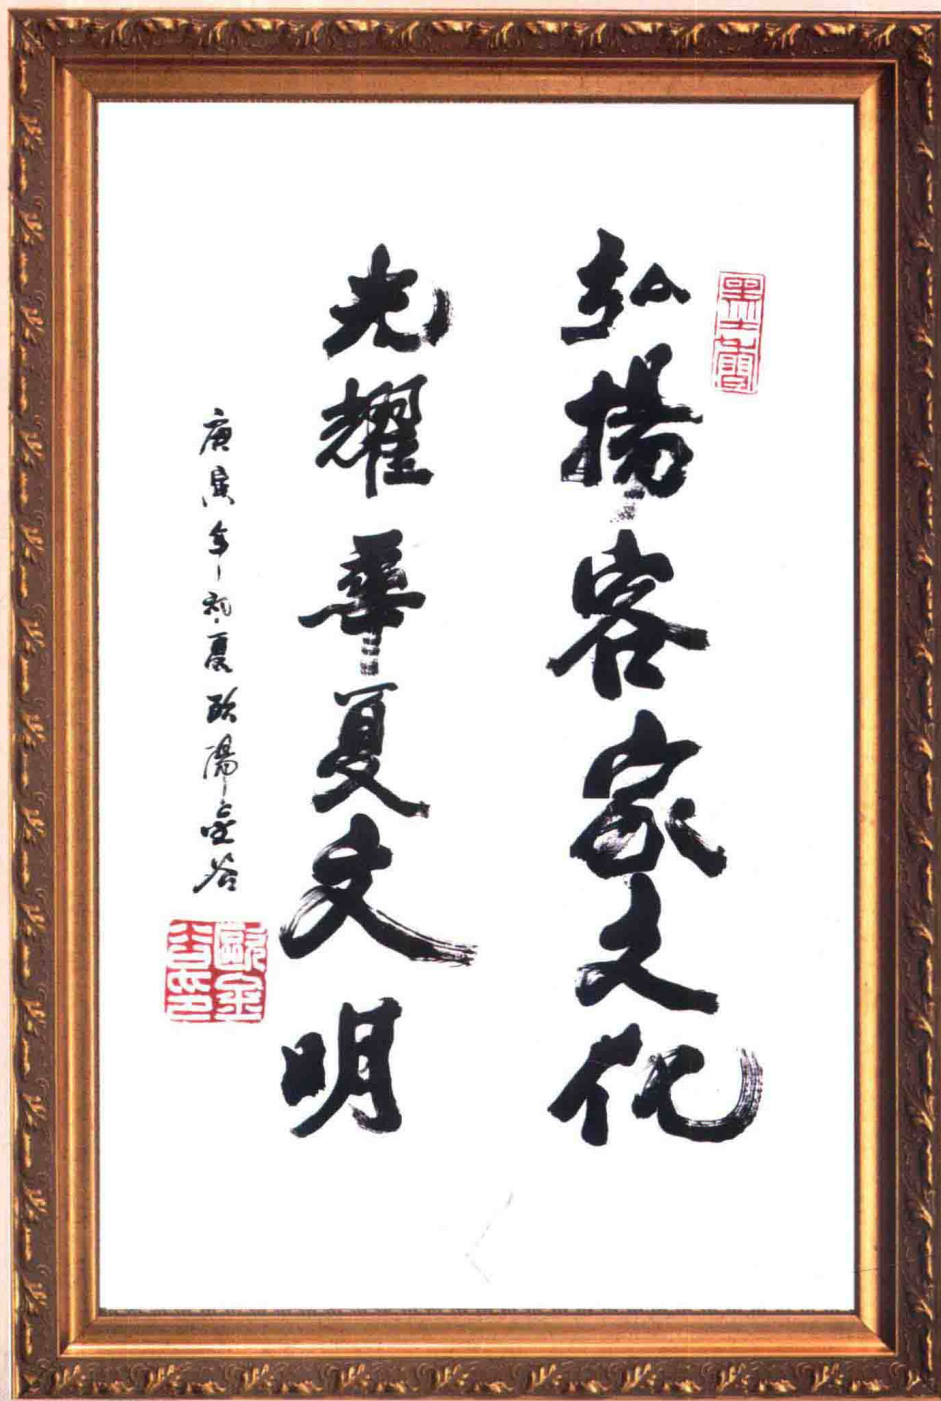 弘揚客家文化
光耀華夏文明
庚寅年初夏欧陽金谷
歐金谷印